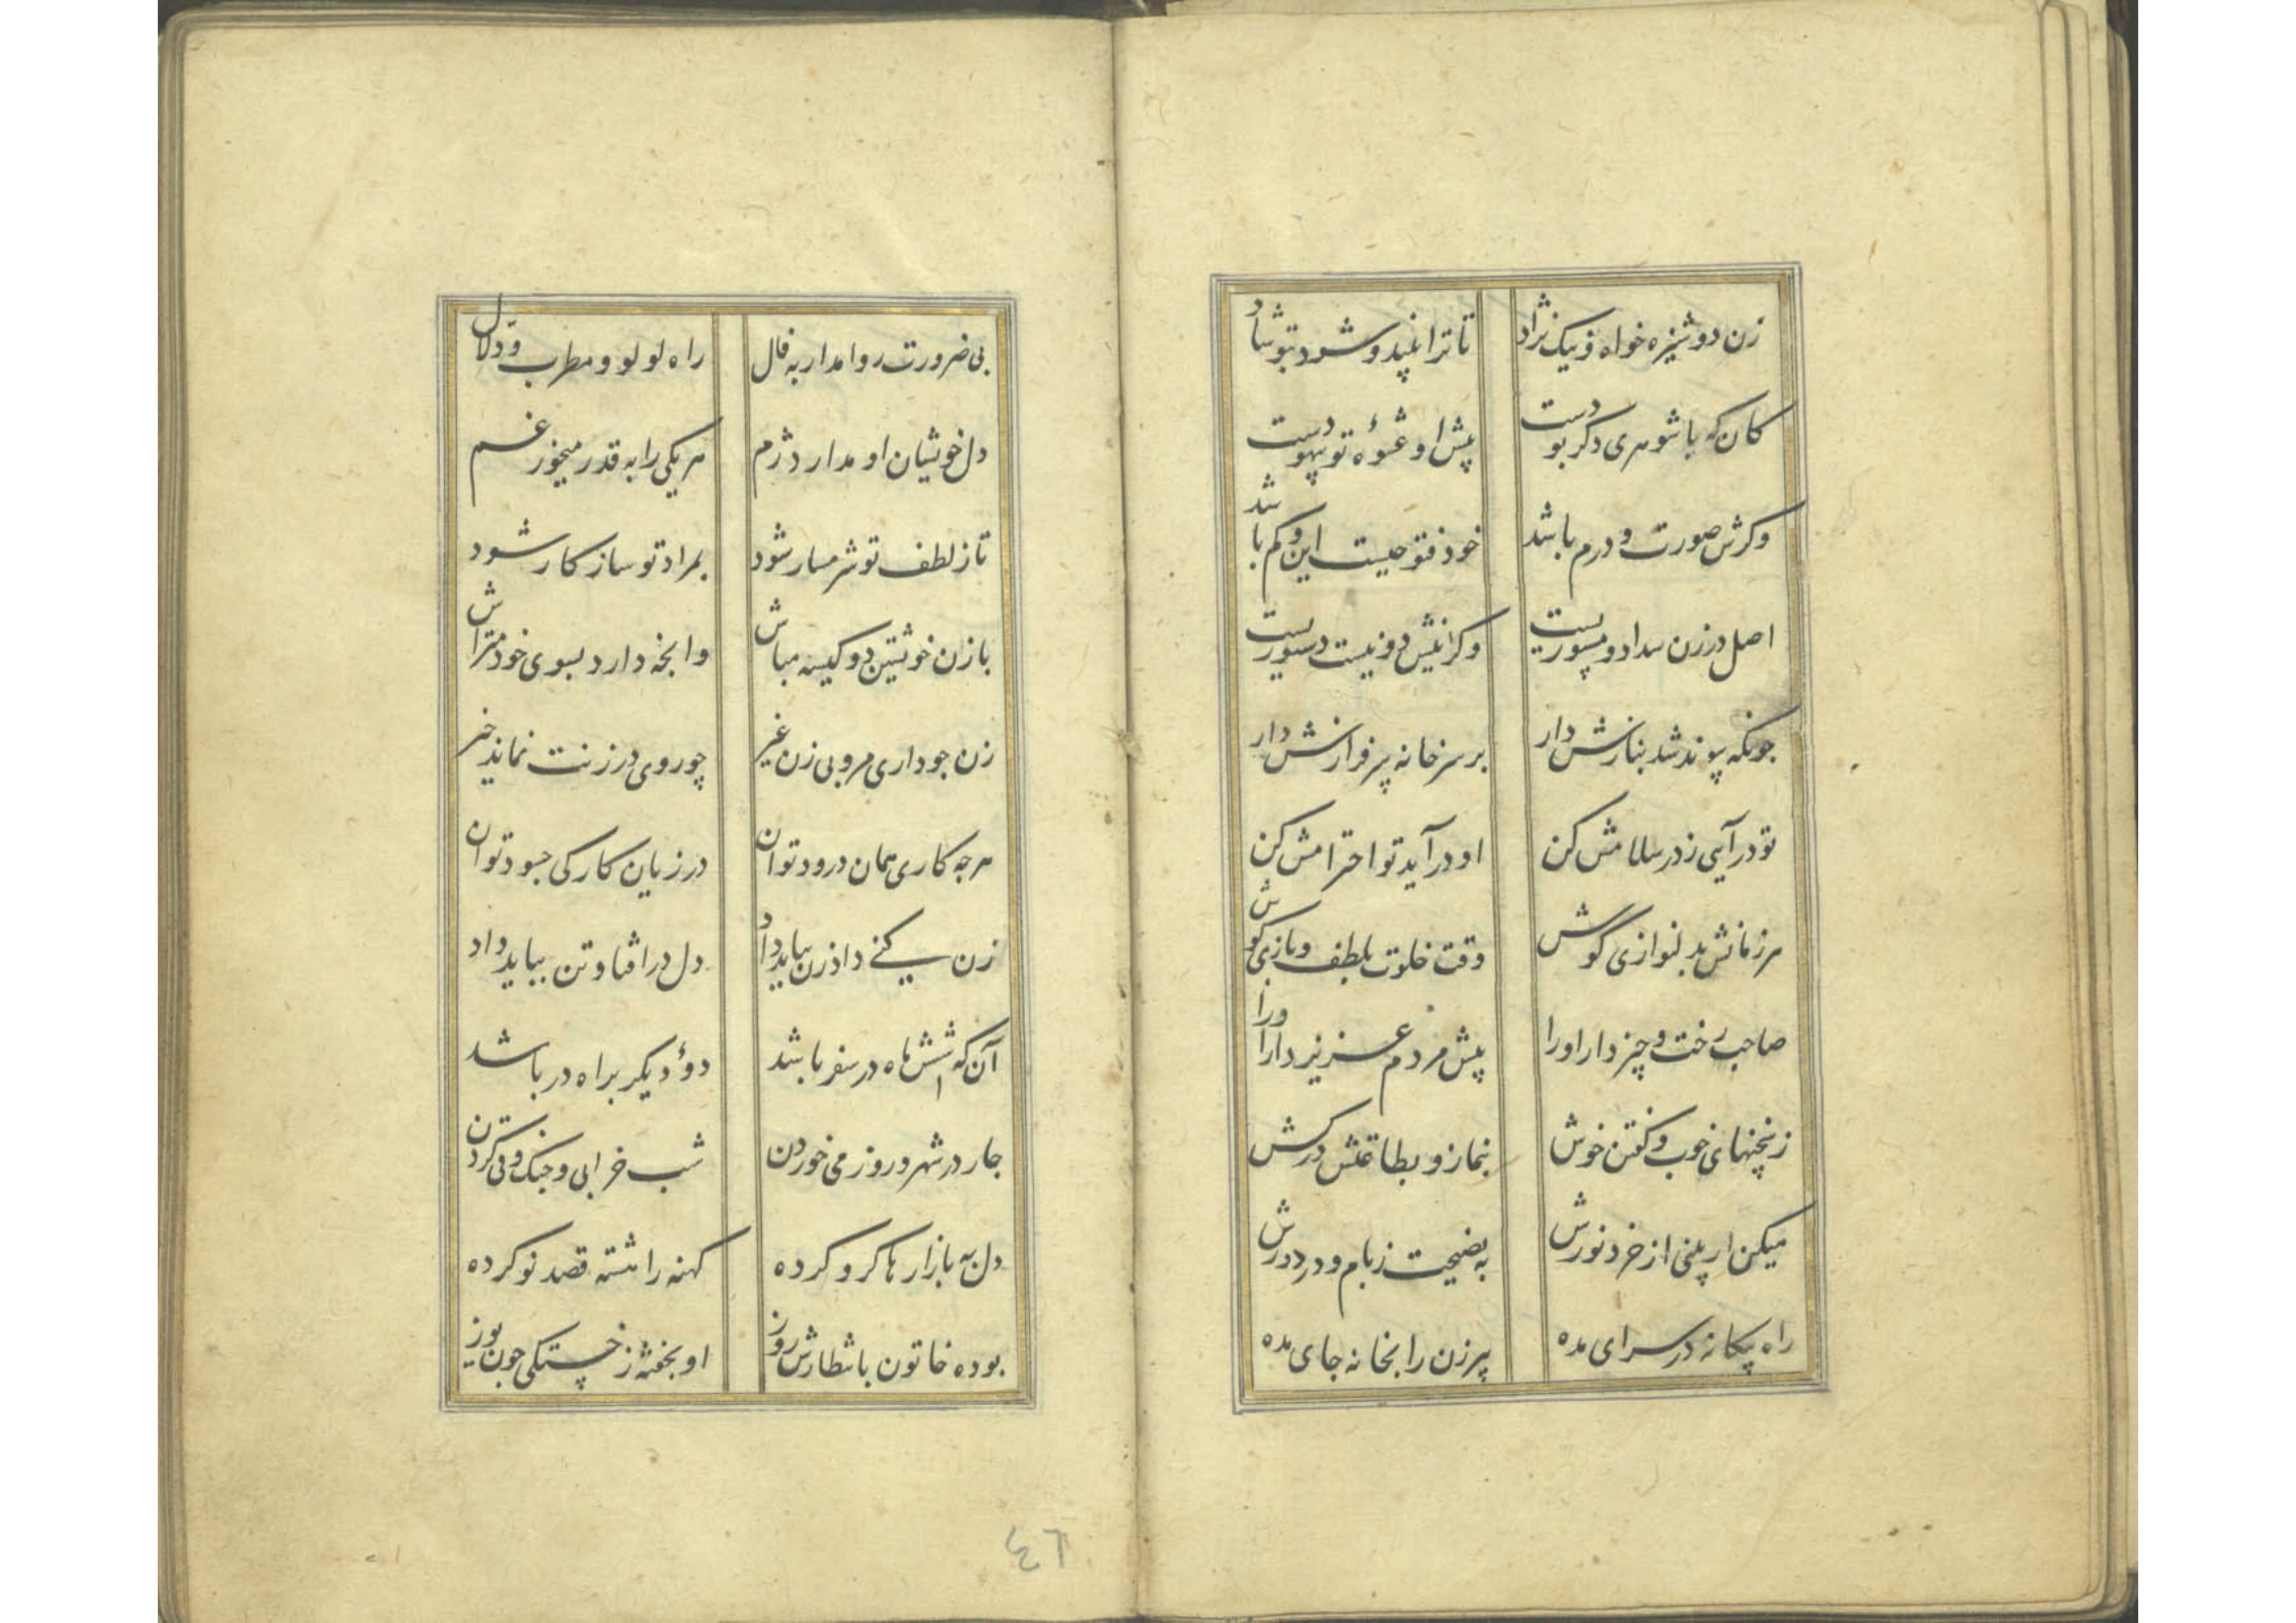 زن دوشیزه خواه و نیک نژاد تا ترا بیند و شود بتو شاد
کان که با شوهری دگر بودست پیش او عشوهٔ تو بیهودست
وکرش صورت و درم باشد خود فتوحیست این و کم باشد
اصل در زن سداد و مستوریست وکرانیش دو نیست دستوریست
جونکه پیوند شد بنازش دار بر سر خانه سرفرازش دار
تو در آیی ز در سلامش کن او در آید تو احترامش کن
هر زمانش بدلنوازی کوش وقت خلوت بلطف و بازی کوش
صاحب رخت و چیز دار او را پیش مردم عزیز دار او را
ز سخنهای خوب و گفتن خوش بنماز و بطاعتش درکش
میکن ار بینی از خرد نورش به نصیحت ز بام و در دورش
راه بیکانه در سرای مده پیرزن را بخانه جای مده
بی ضرورت روا مدار به فال راه لولو و مطرب و دلال
دل خویشان او مدار دژم هر یکی را به قدر میخور غم
تا ز لطف تو شرمسار شود بمراد تو سازکار شود
با زن خویشتن دو کیسه مباش وانجه دارد بسوی خود متراش
زن جو داری مرو پی زن غیر چو روی در زنت نماند خیر
هر جه کاری همان درود توان در زیان کار کی جسود توان
زن کنی داد زن بباید داد دل در افتاد و تن بباید داد
آن که شش ماه در سفر باشد دؤ دیکر براه در باشد
جار در شهر و روز می خوردن شب خرابی و جنک و قی کردن
دل به بازارها کرو کرده کهنه را هشته قصد نو کرده
بوده خاتون بانتظارش روز او بخفته ز خستکی جون یوز
٤٦